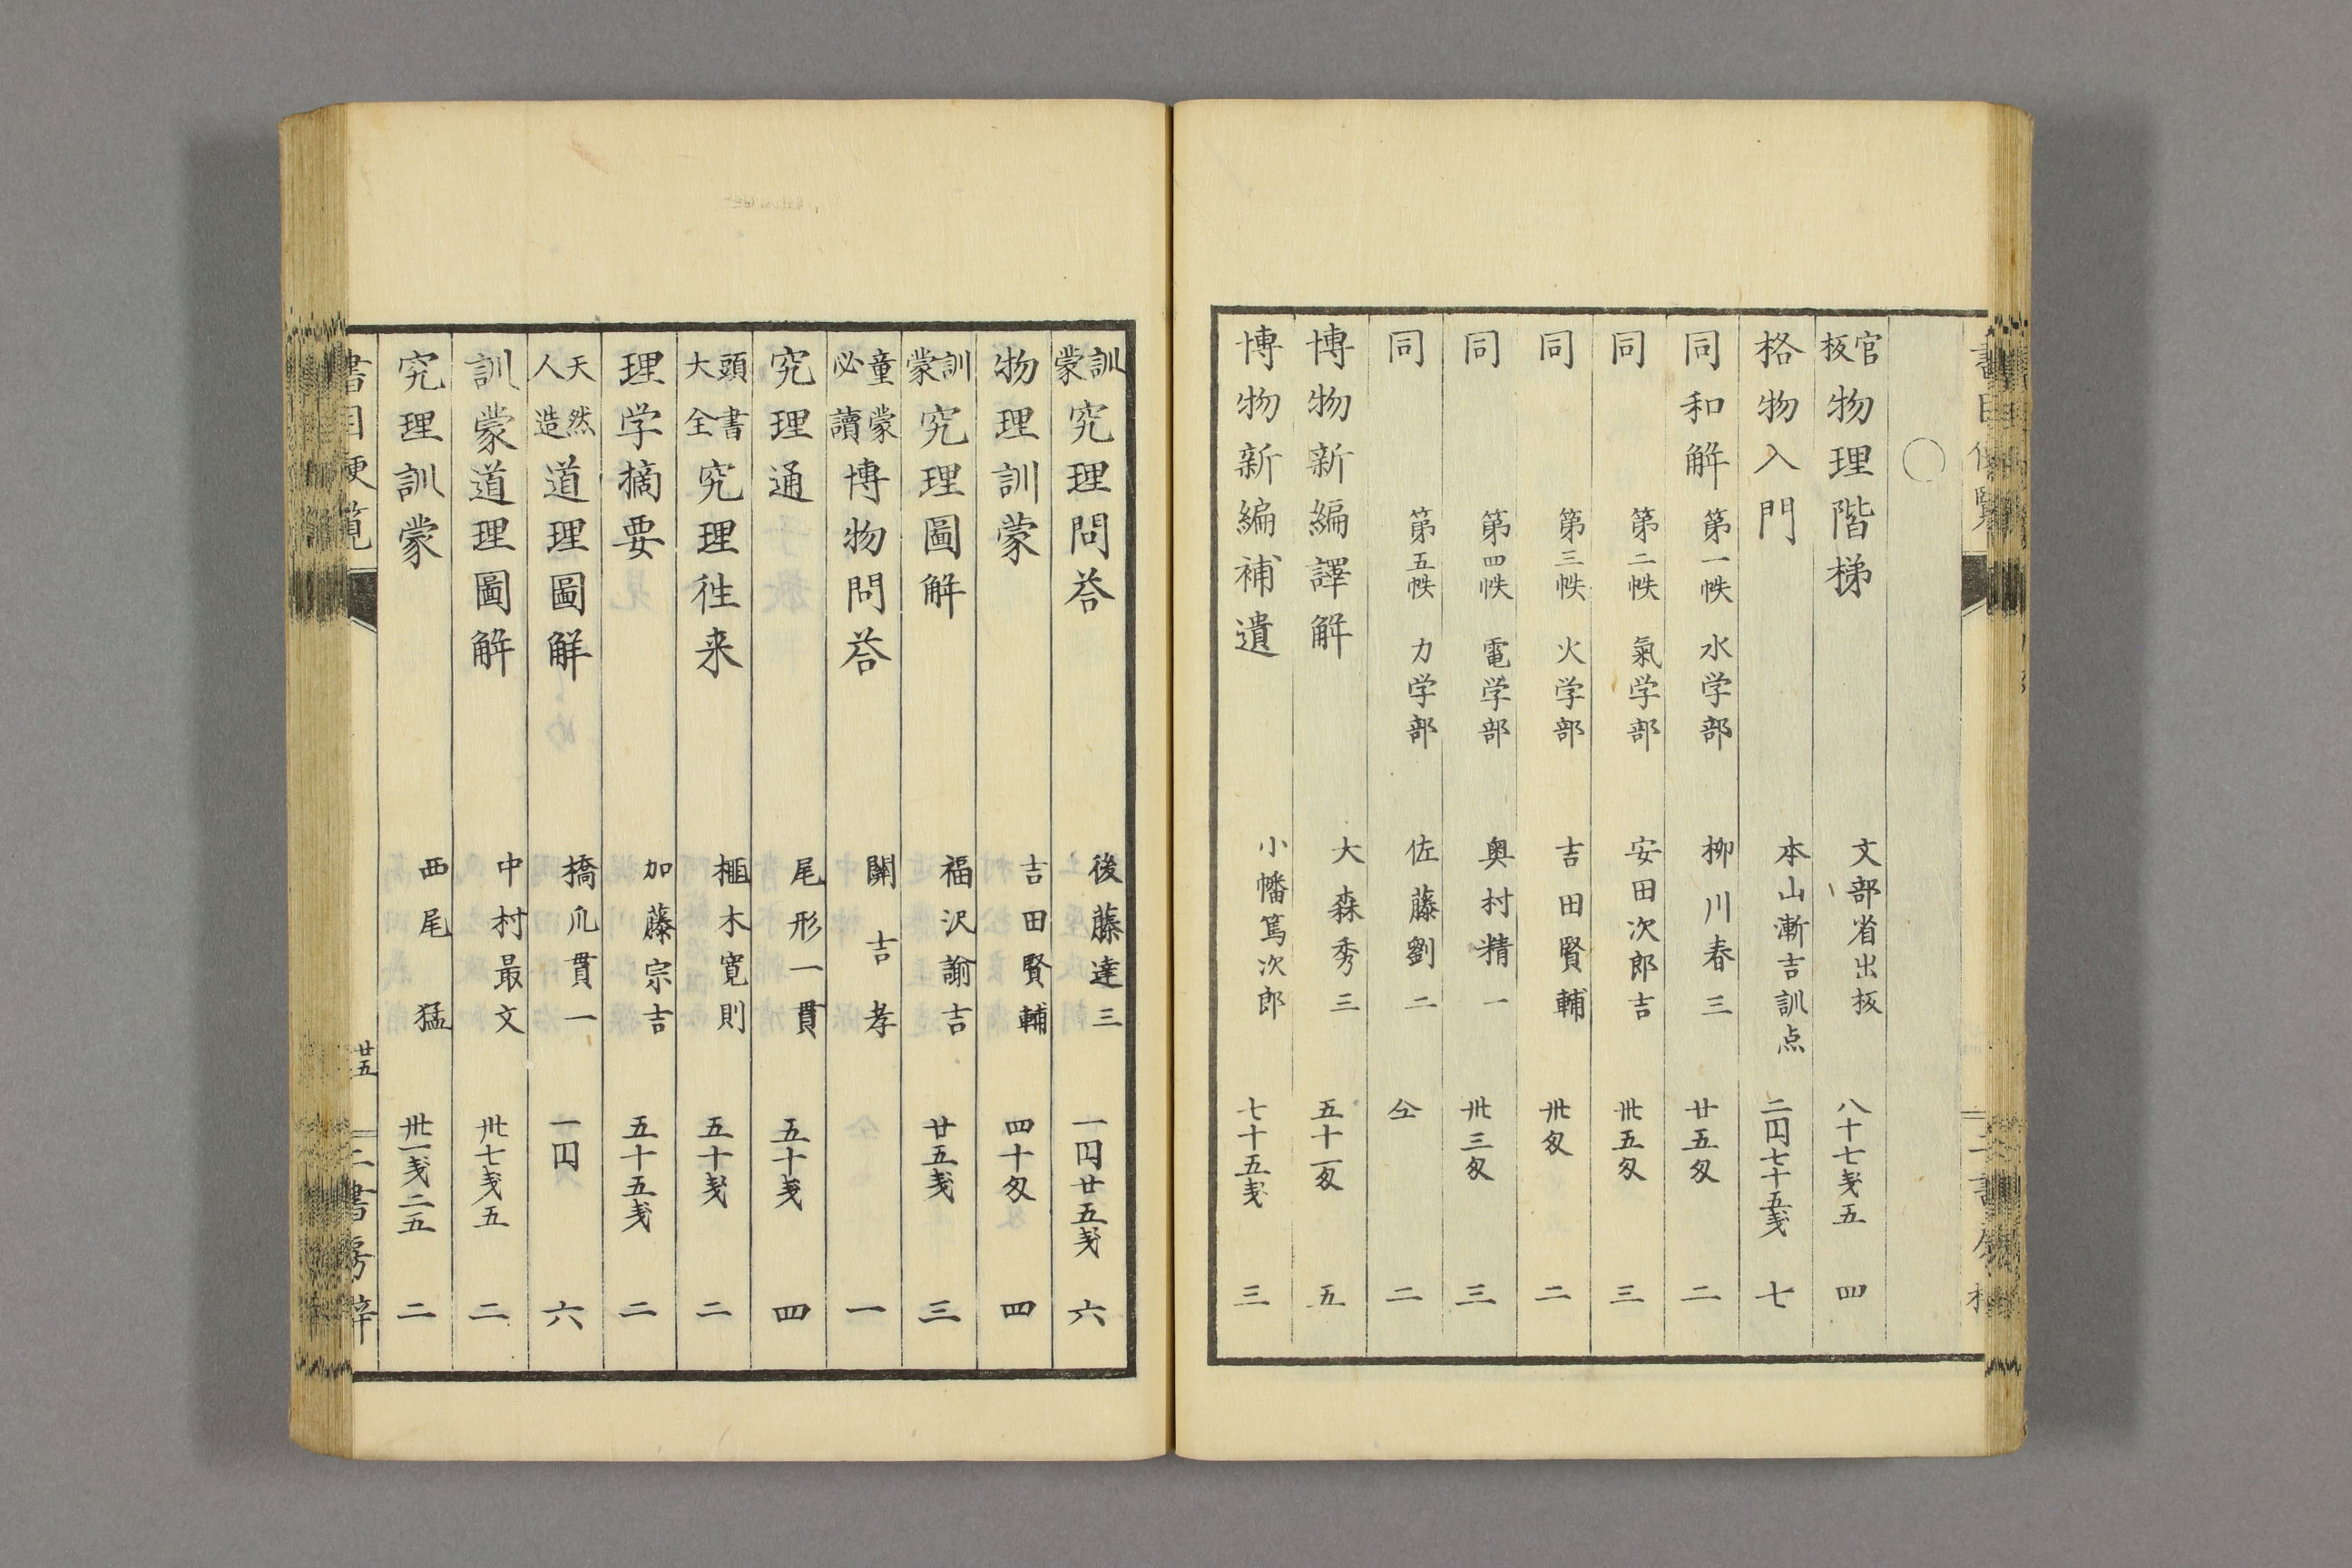 〇
官板 物理階梯 文部省出板 八十七戔五 四
格物入門 本山漸吉訓点 二円七十五戔 七
同和解 第一帙 水学部 柳川春三 廿五匁 二
同 第二帙 氣学部 安田次郎吉 卅五匁 三
同 第三帙 火学部 吉田賢輔 卅匁 二
同 第四帙 電学部 奥村精一 卅三匁 三
同 第五帙 力学部 佐藤劉二 仝 二
博物新編譯解 大森秀三 五十一匁 五
博物新編補遺 小幡篤次郎 七十五戔 三
訓蒙 究理問荅 後藤達三 一円廿五戔 六
物理訓蒙 吉田賢輔 四十匁 四
訓蒙 究理圖解 福沢諭吉 廿五戔 三
童蒙必讀 博物問荅 関吉孝 一
究理通 尾形一貫 五十戔 四
頭書大全 究理徃来 楒木寛則 五十戔 二
理学摘要 加藤宗吉 五十五戔 二
天然人造 道理圖解 橋爪貫一 一円 六
訓蒙道理圖解 中村最文 卅七戔五 二
究理訓蒙 西尾猛 卅一戔二五 二
書目便覧 廿五 二書房梓